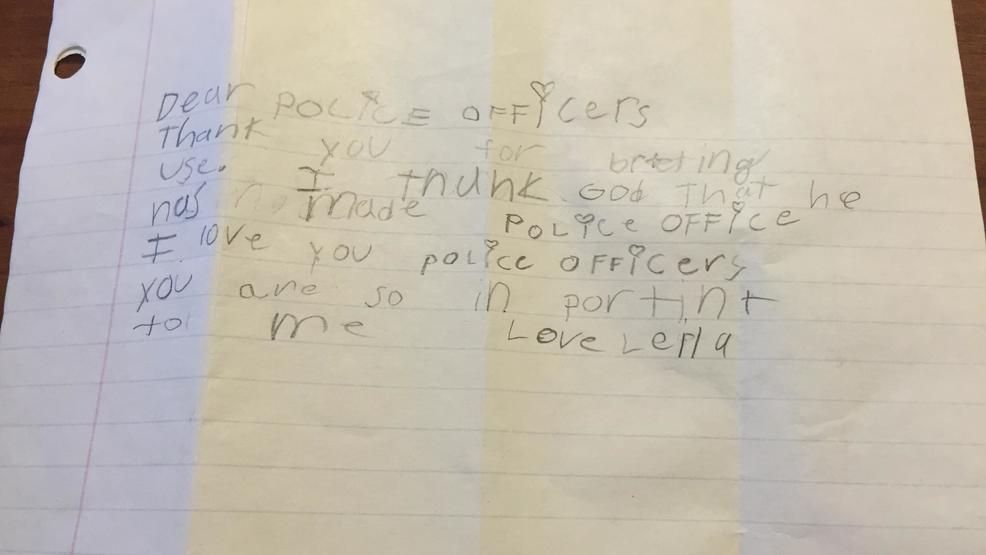 Dear POLiCE OFFicers
Thank you for
use. I thunk God That he
has made POLice OFFice
I love you police OFFicers
you are so in portint
to me Love Leila